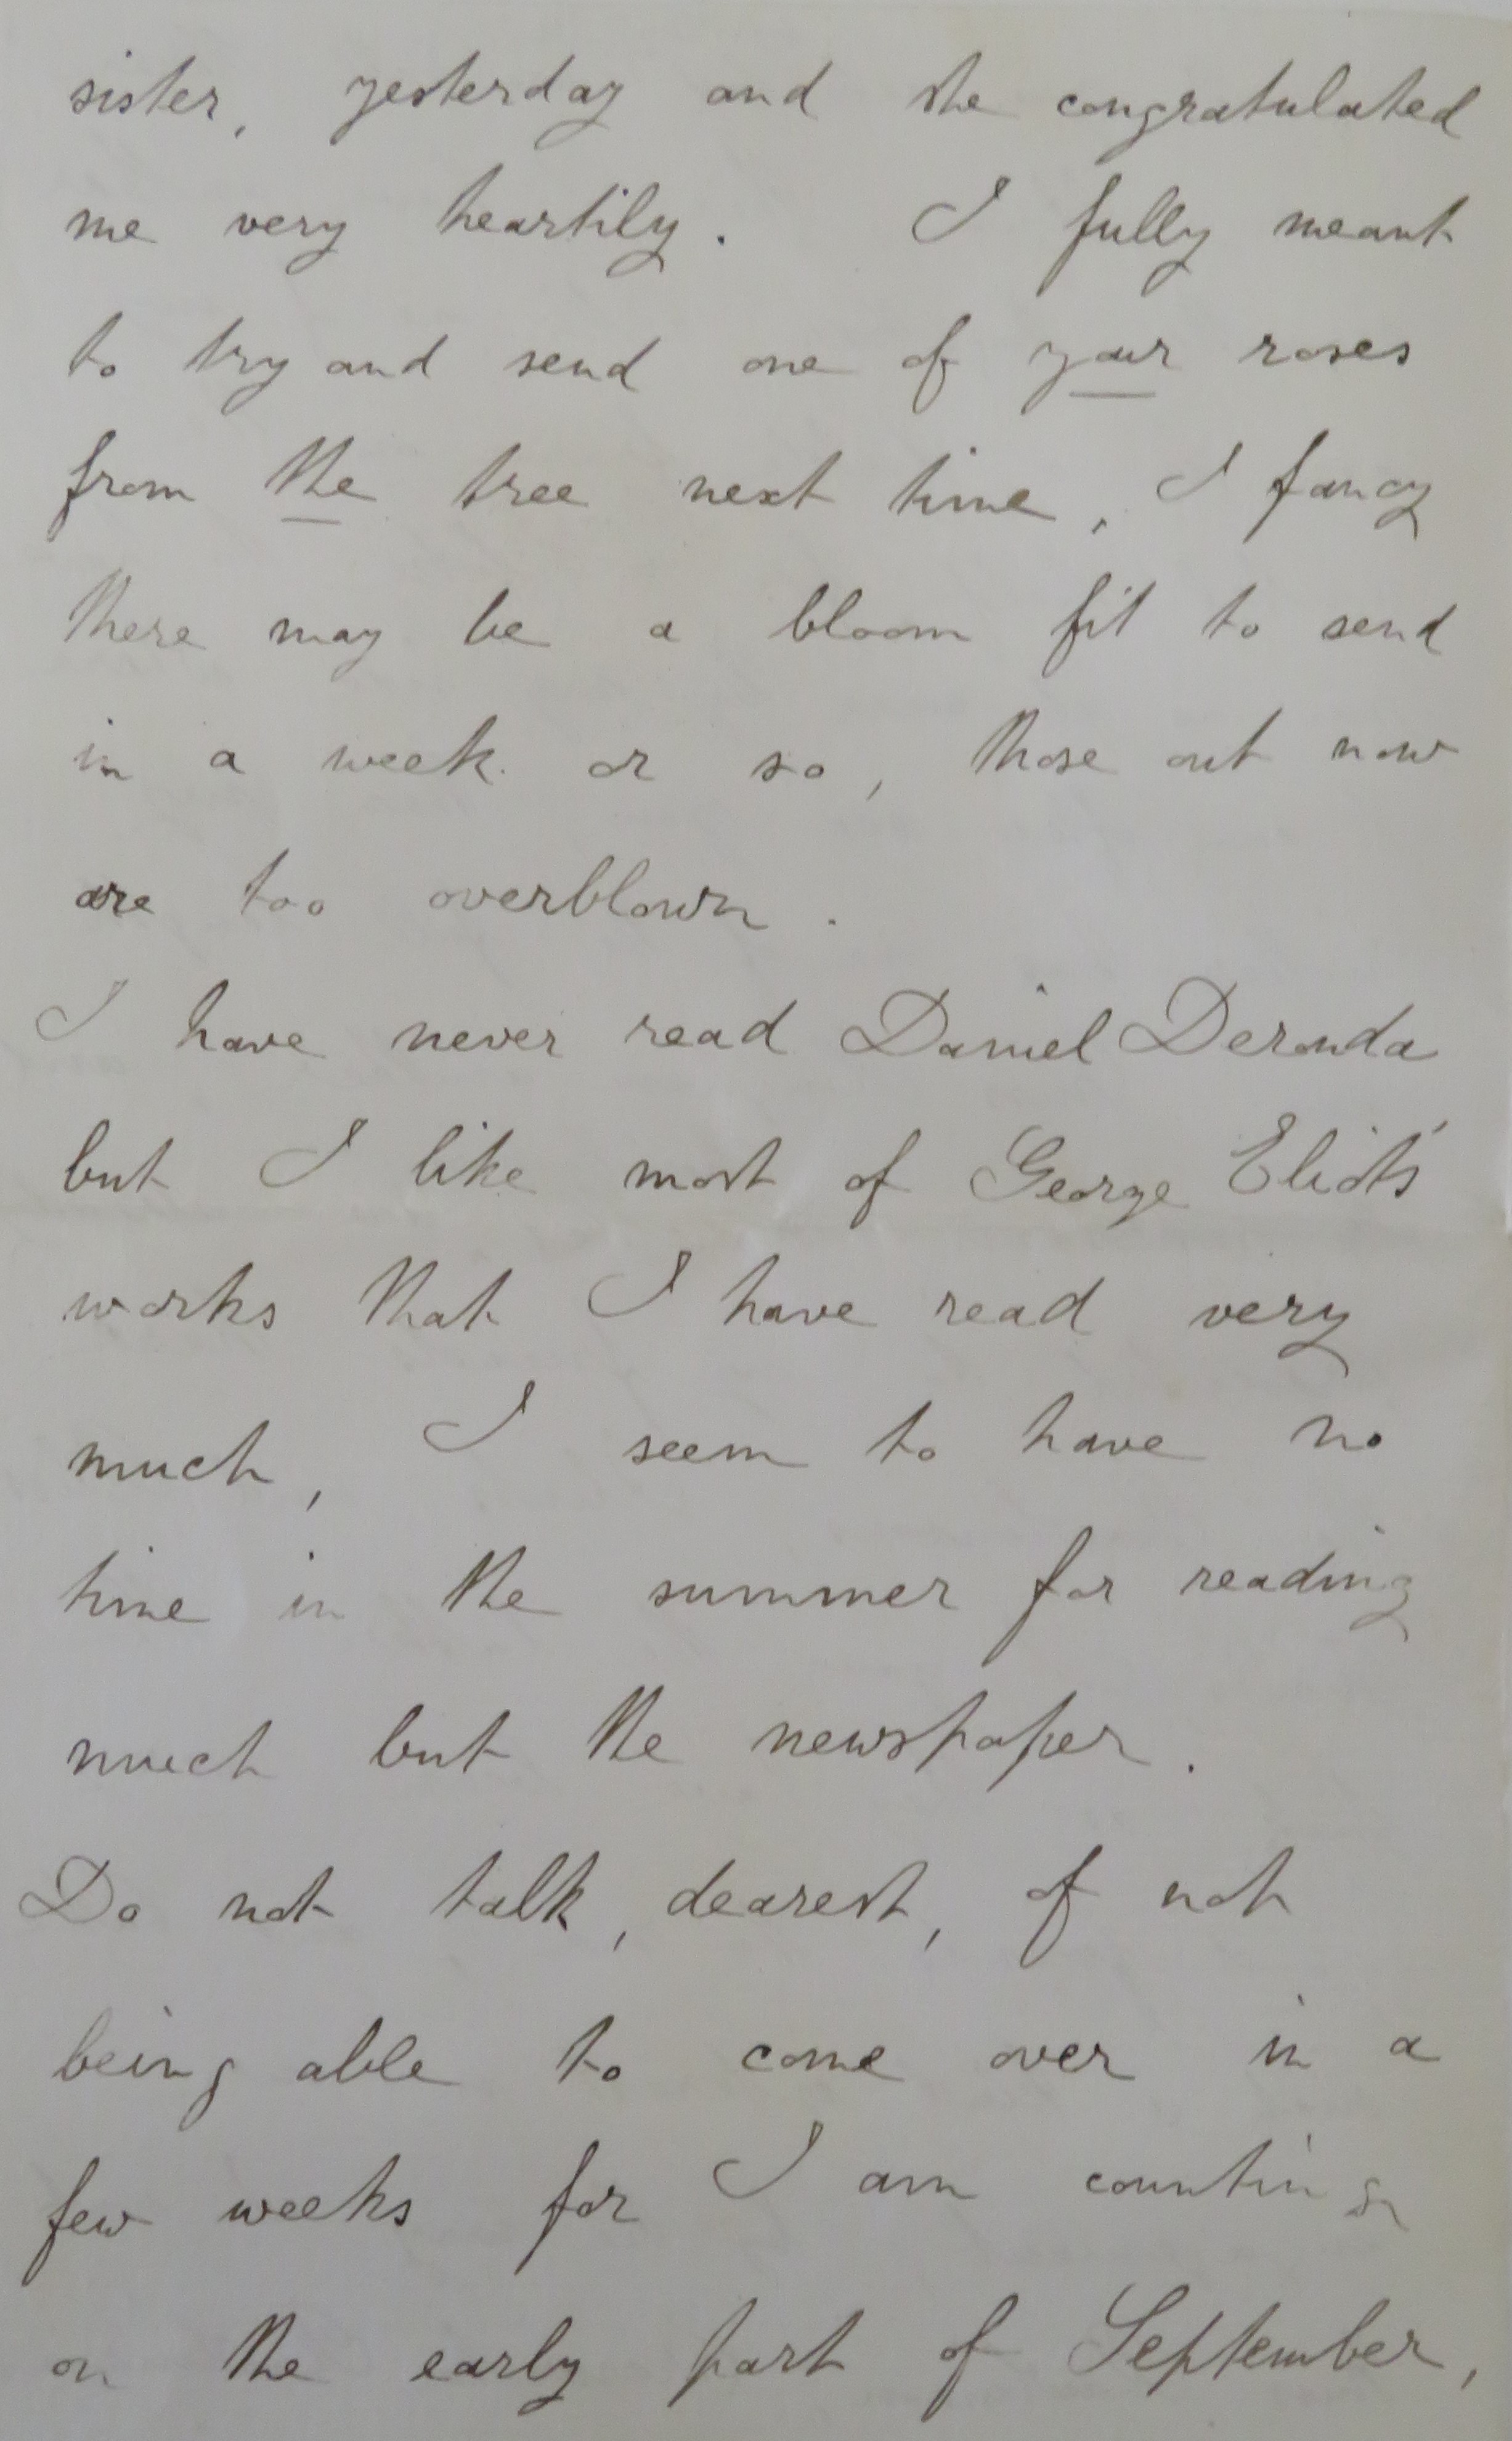 sister, yesterday and she congratulated
me very heartily. I fully meant
to try and send one of your roses
from the tree next time, I fancy
there may be a bloom fit to send
in a week or so, those out now
are too overblown.
I have never read Daniel Deronda
but I like most of George Eliot's
works that I have read very
much, I seem to have no
time in the summer for reading
much but the newspaper.
Do not talk, dearest, of not
being able to come over in a
few weeks for I am counting
on the early part of September,